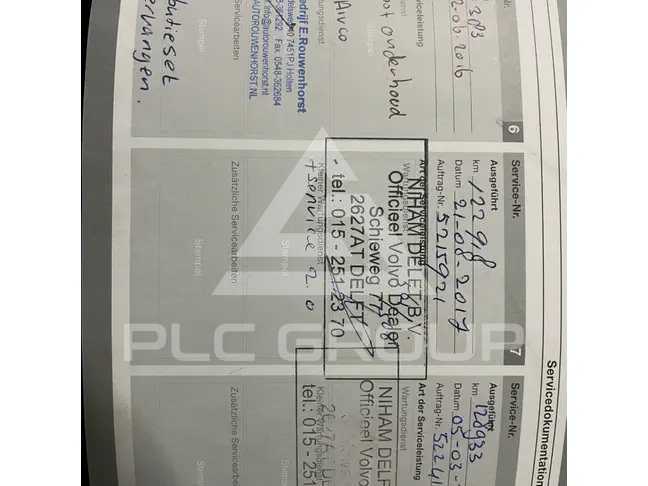 Servicedokumentation
6
2.08.2016
ot onderhoud
Airco
edrijf E.Rouwenhorst
7451PJ Holten
Fax. 0548-362684
AUTOROUWENHORST.NL
Zusätzliche Servicearbeiten
Stempel
vervangen.
Service-Nr. 7
Ausgeführt
km 122918
Datum 21-08-2017
Auftrag-Nr. 5215921
Art der Serviceleistung
NIHAM DELFT B.V.
Officieel Volvo Dealer
Schieweg 77
2627AT DELFT
tel.: 015 - 251 23 70
Kleiner Wartungsdienst
+ service 2.0
Stempel
Zusätzliche Servicearbeiten
Stempel
Service-Nr.
Ausgeführt
km 128933
Datum 05-03-
Auftrag-Nr. 52241
Art der Serviceleistung
Wartungsdienst
NIHAM DELF
Officieel Volvo
tel.: 015 - 251
Zusätzliche Servicearbe
Stempel
PLC GROUP